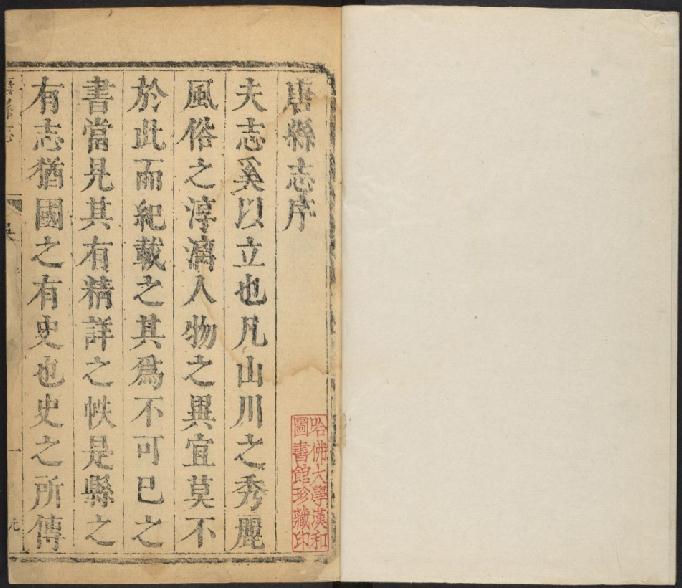 唐縣志序
夫志奚以立也凡山川之秀麗
風俗之淳漓人物之異宜莫不
於此而紀載之其爲不可已之
書當見其有精詳之帙是縣之
有志猶國之有史也史之所傳
哈佛大學漢和
圖書館珍藏印